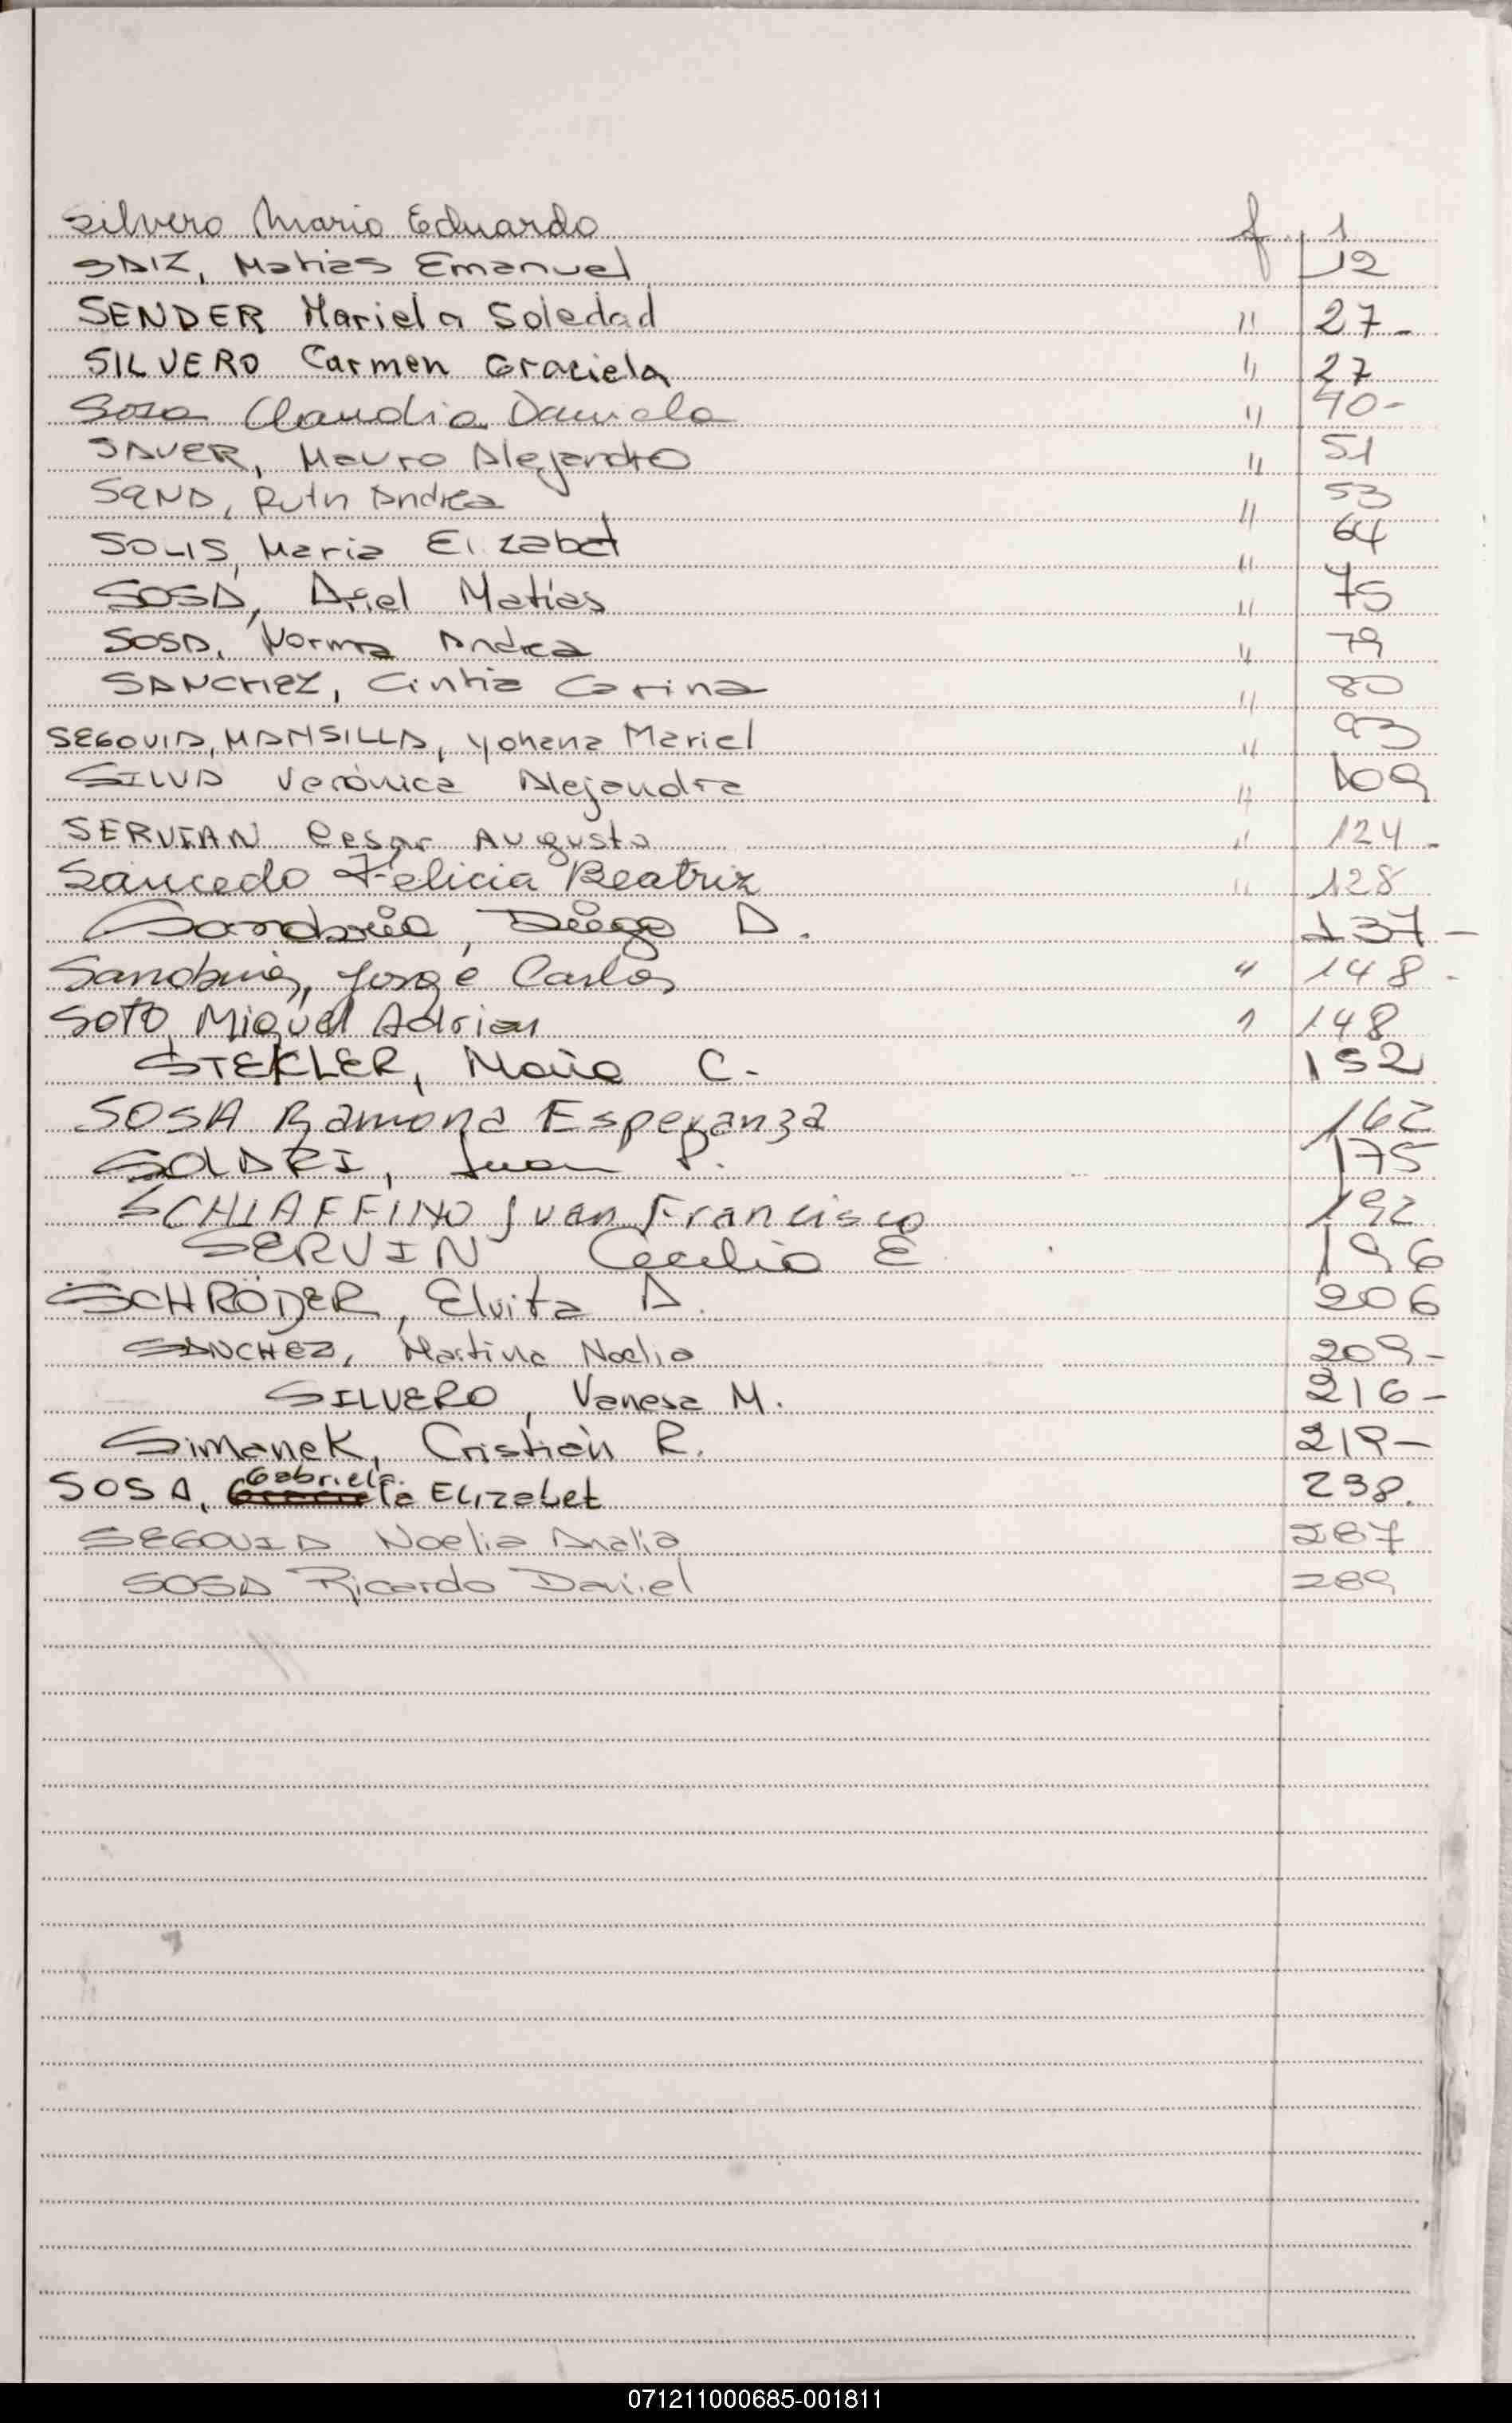 Silvero Mario Eduardo f. 1
SAIZ, Matias Emanuel 12
SENDER Mariela Soledad " 27-
SILVERO Carmen Graciela " 27
Sosa Claudia Daniela " 40-
SAUER, Mauro Alejandro " 51
SAND, Ruth Andrea " 53
SOLIS, Maria Elizabet " 64
SOSA, Ariel Matias " 75
SOSA, Norma Andrea " 79
SANCHEZ, Cintia Carina " 80
SEGOVIA, MANSILLA, Yohana Mariel " 93
SILVA Verónica Alejandra " 109
SERVIAN Cesar Augusto " 124-
Saucedo Felicia Beatriz " 128
Sanabria, Diego A. 137-
Sanabria, Jorge Carlos " 148-
Soto Miguel Adrian " 148
STEKLER, Maria C. 152
SOSA Ramona Esperanza 162
SOLARI, Juan P. 175
SCHIAFFINO Juan Francisco 192
SERVIN Cecilia E 196
SCHRÖDER, Elvita A. 206
SANCHEZ, Martina Noelia 209-
SILVERO, Vanesa M. 216-
Simanek, Cristian R. 219-
SOSA, Gabriela Elizabet 238.
SEGOVIA Noelia Analia 287
SOSA Ricardo Daniel 289
071211000685-001811